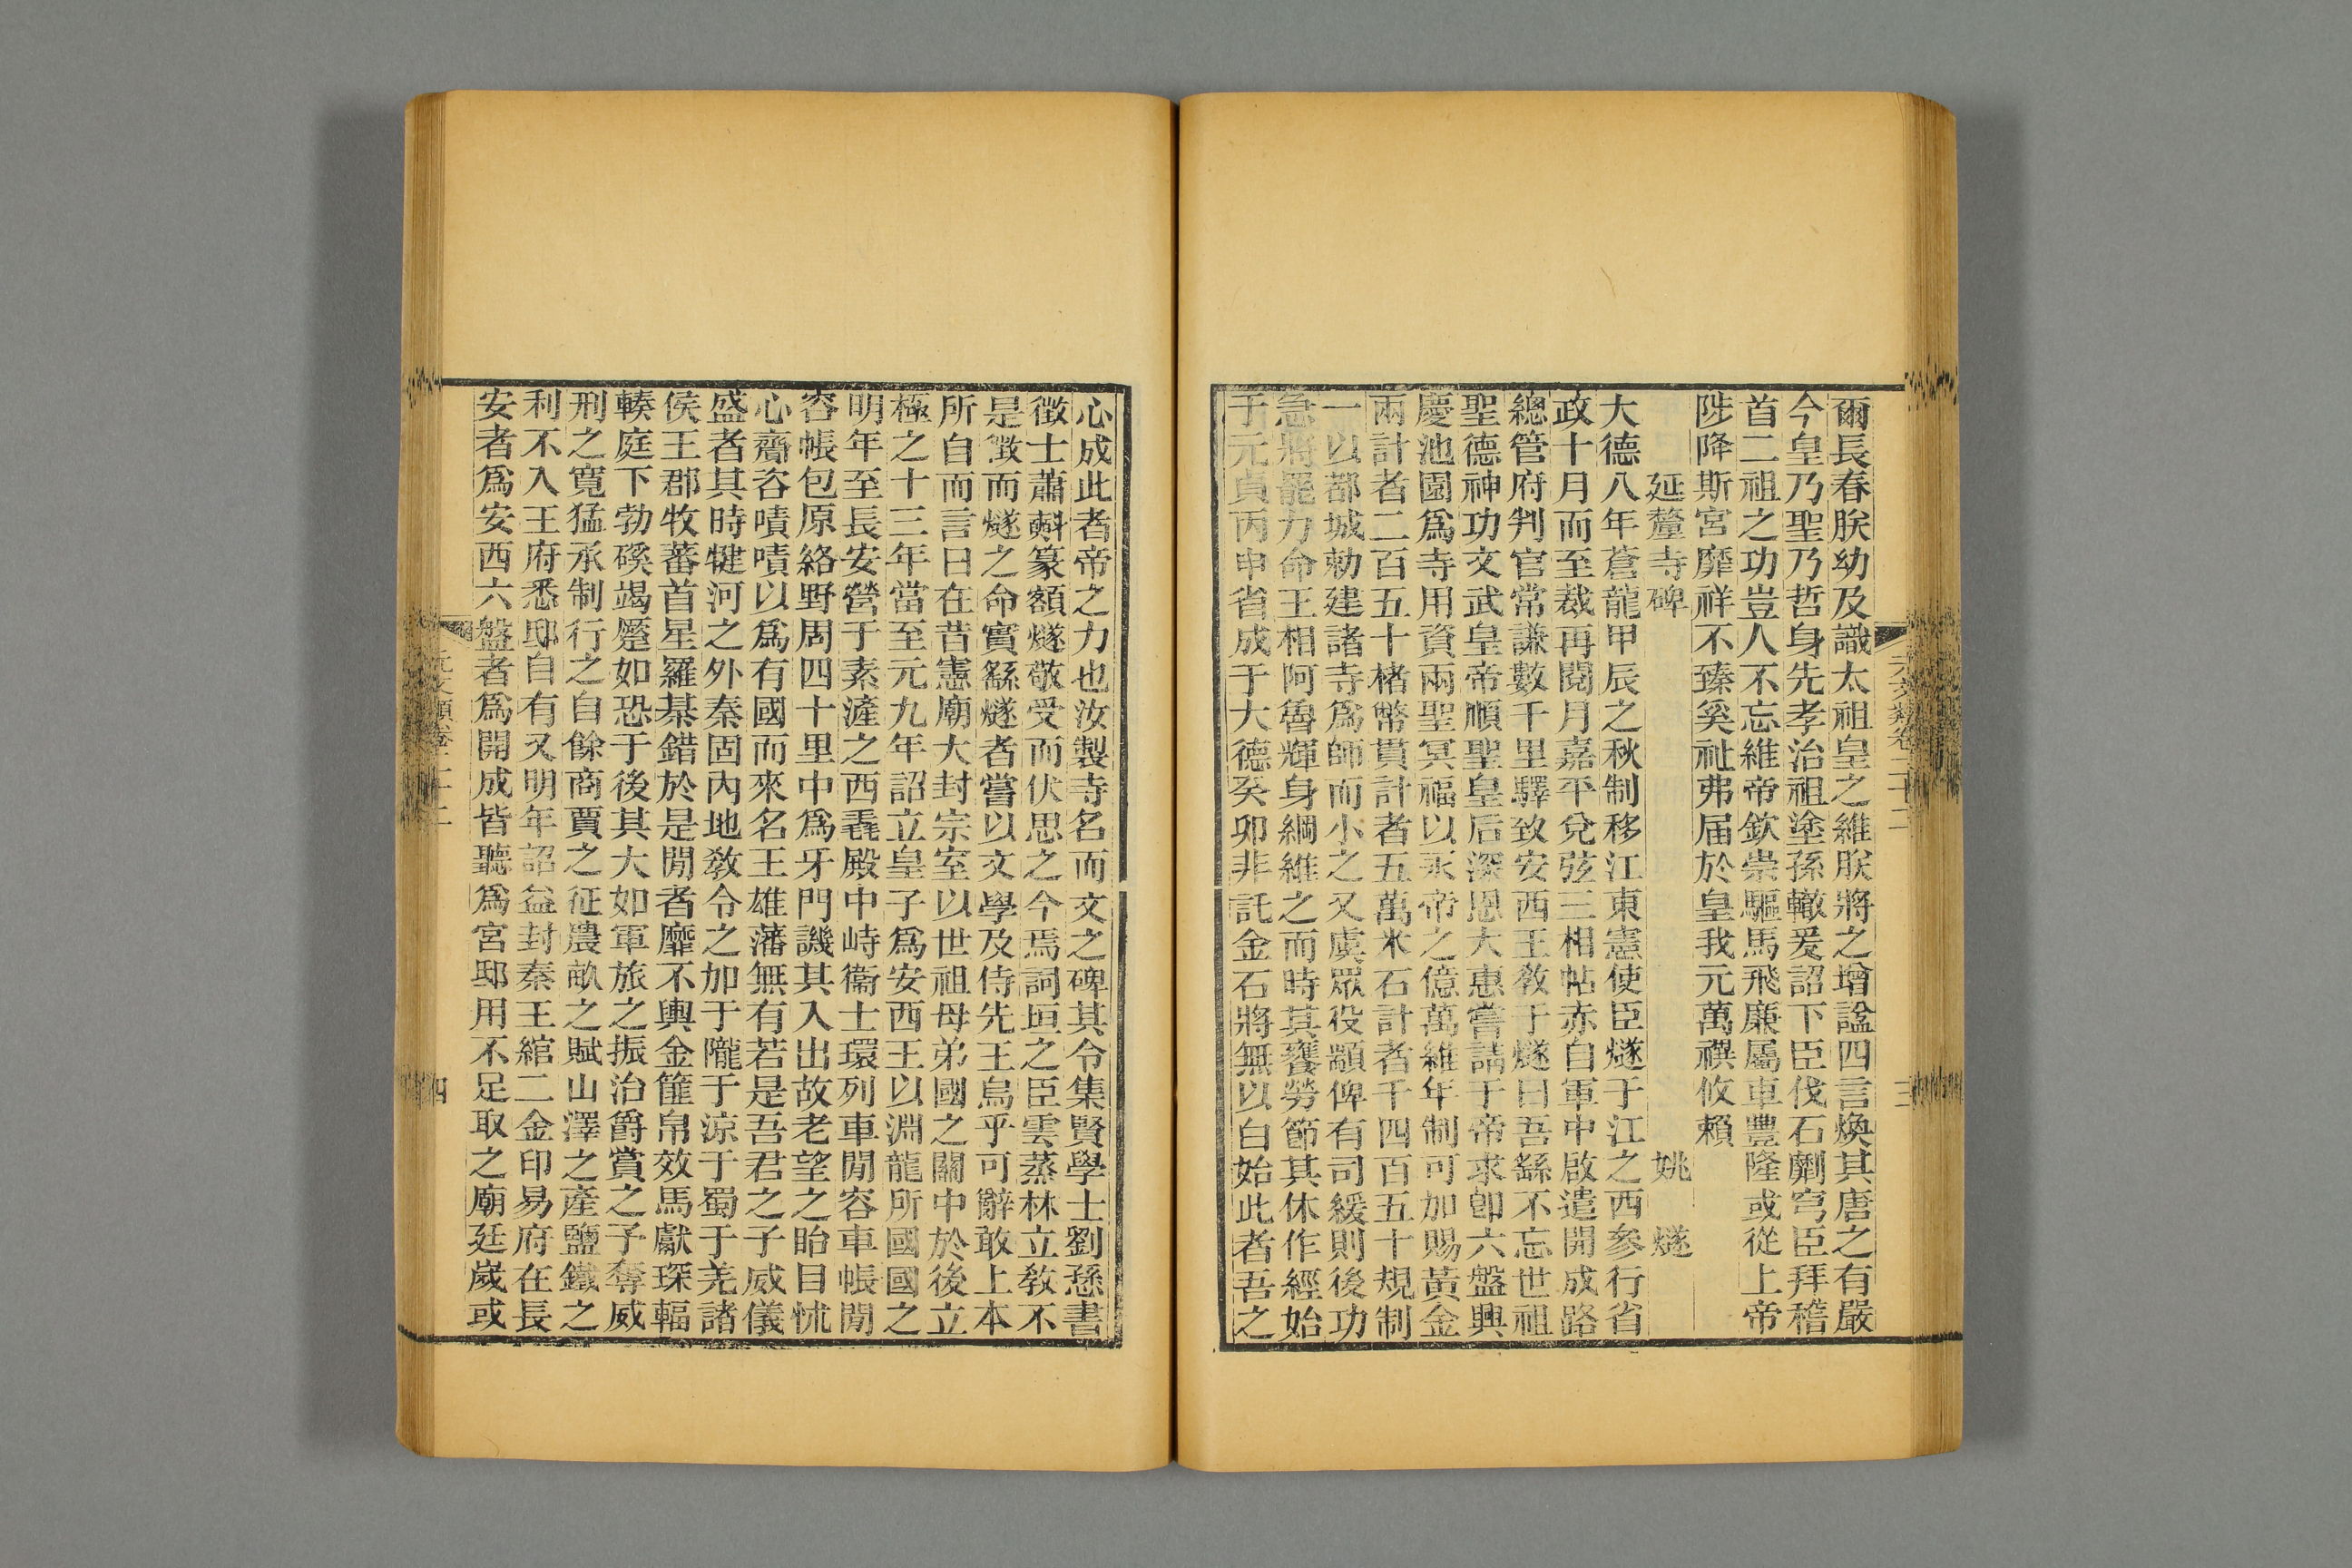 爾長春朕幼及識太祖皇之維朕將之增諡四言煥其唐之有嚴
今皇乃聖乃哲身先孝治祖塗孫轍爰詔下臣伐石劚穹臣拜稽
首二祖之功豈人不忘維帝欽崇驅馬飛廉屬車豐隆或從上帝
陟降斯宮靡祥不臻奚祉弗届於皇我元萬禩攸賴
延釐寺碑 姚燧
大德八年蒼龍甲辰之秋制移江東憲使臣燧于江之西参行省
政十月而至裁再閱月嘉平兌弦三相帖赤白軍中啟遣開成路
總管府判官常謙數千里驛致安西王敎于燧曰吾繇不忘世祖
聖德神功文武皇帝順聖皇后深恩大惠嘗請于帝求卽六盤興
慶池園爲寺用資兩聖冥福以永帝之億萬維年制可加賜黃金
兩計者二百五十楮幣貫計者五萬米石計者千四百五十規制
一以都城勅建諸寺爲師而小之又虞眾役顓俾有司緩則後功
急將罷力命王相阿魯輝身綱維之而時其饔勞節其休作經始
于元貞丙申省成于大德癸卯非託金石將無以白始此者吾之
心成此者帝之力也汝製寺名而文之碑其令集賢學士劉愻書
徵士蕭㪺篆額燧敬受而伏思之今焉詞垣之臣雲蒸林立敎不
是徵而燧之命實繇燧者嘗以文學及侍先王烏乎可辭敢上本
所自而言曰在昔憲廟大封宗室以世祖母弟國之關中於後立
極之十三年當至元九年詔立皇子爲安西王以淵龍所國國之
明年至長安營于素滻之西毳殿中峙衞士環列車閒容車帳閒
容帳包原絡野周四十里中爲牙門譏其入出故老望之眙目怵
心齎咨嘖嘖以爲有國而來名王雄藩無有若是吾君之子威儀
盛者其時犍河之外秦固內地敎令之加于隴于涼于蜀于羌諸
侯王郡牧蕃首星羅棊錯於是閒者靡不輿金篚帛效馬獻琛輻
輳庭下勃磎竭蹷如恐于後其大如軍旅之振治爵賞之予奪威
刑之寬猛承制行之自餘商賈之征農畝之賦山澤之產鹽鐵之
利不入王府悉邸自有又明年詔益封秦王綰二金印易府在長
安者爲安西六盤者爲開成皆聽爲宮邸用不足取之廟廷嵗或
元文類卷二十二
三
元文類卷二十二
四